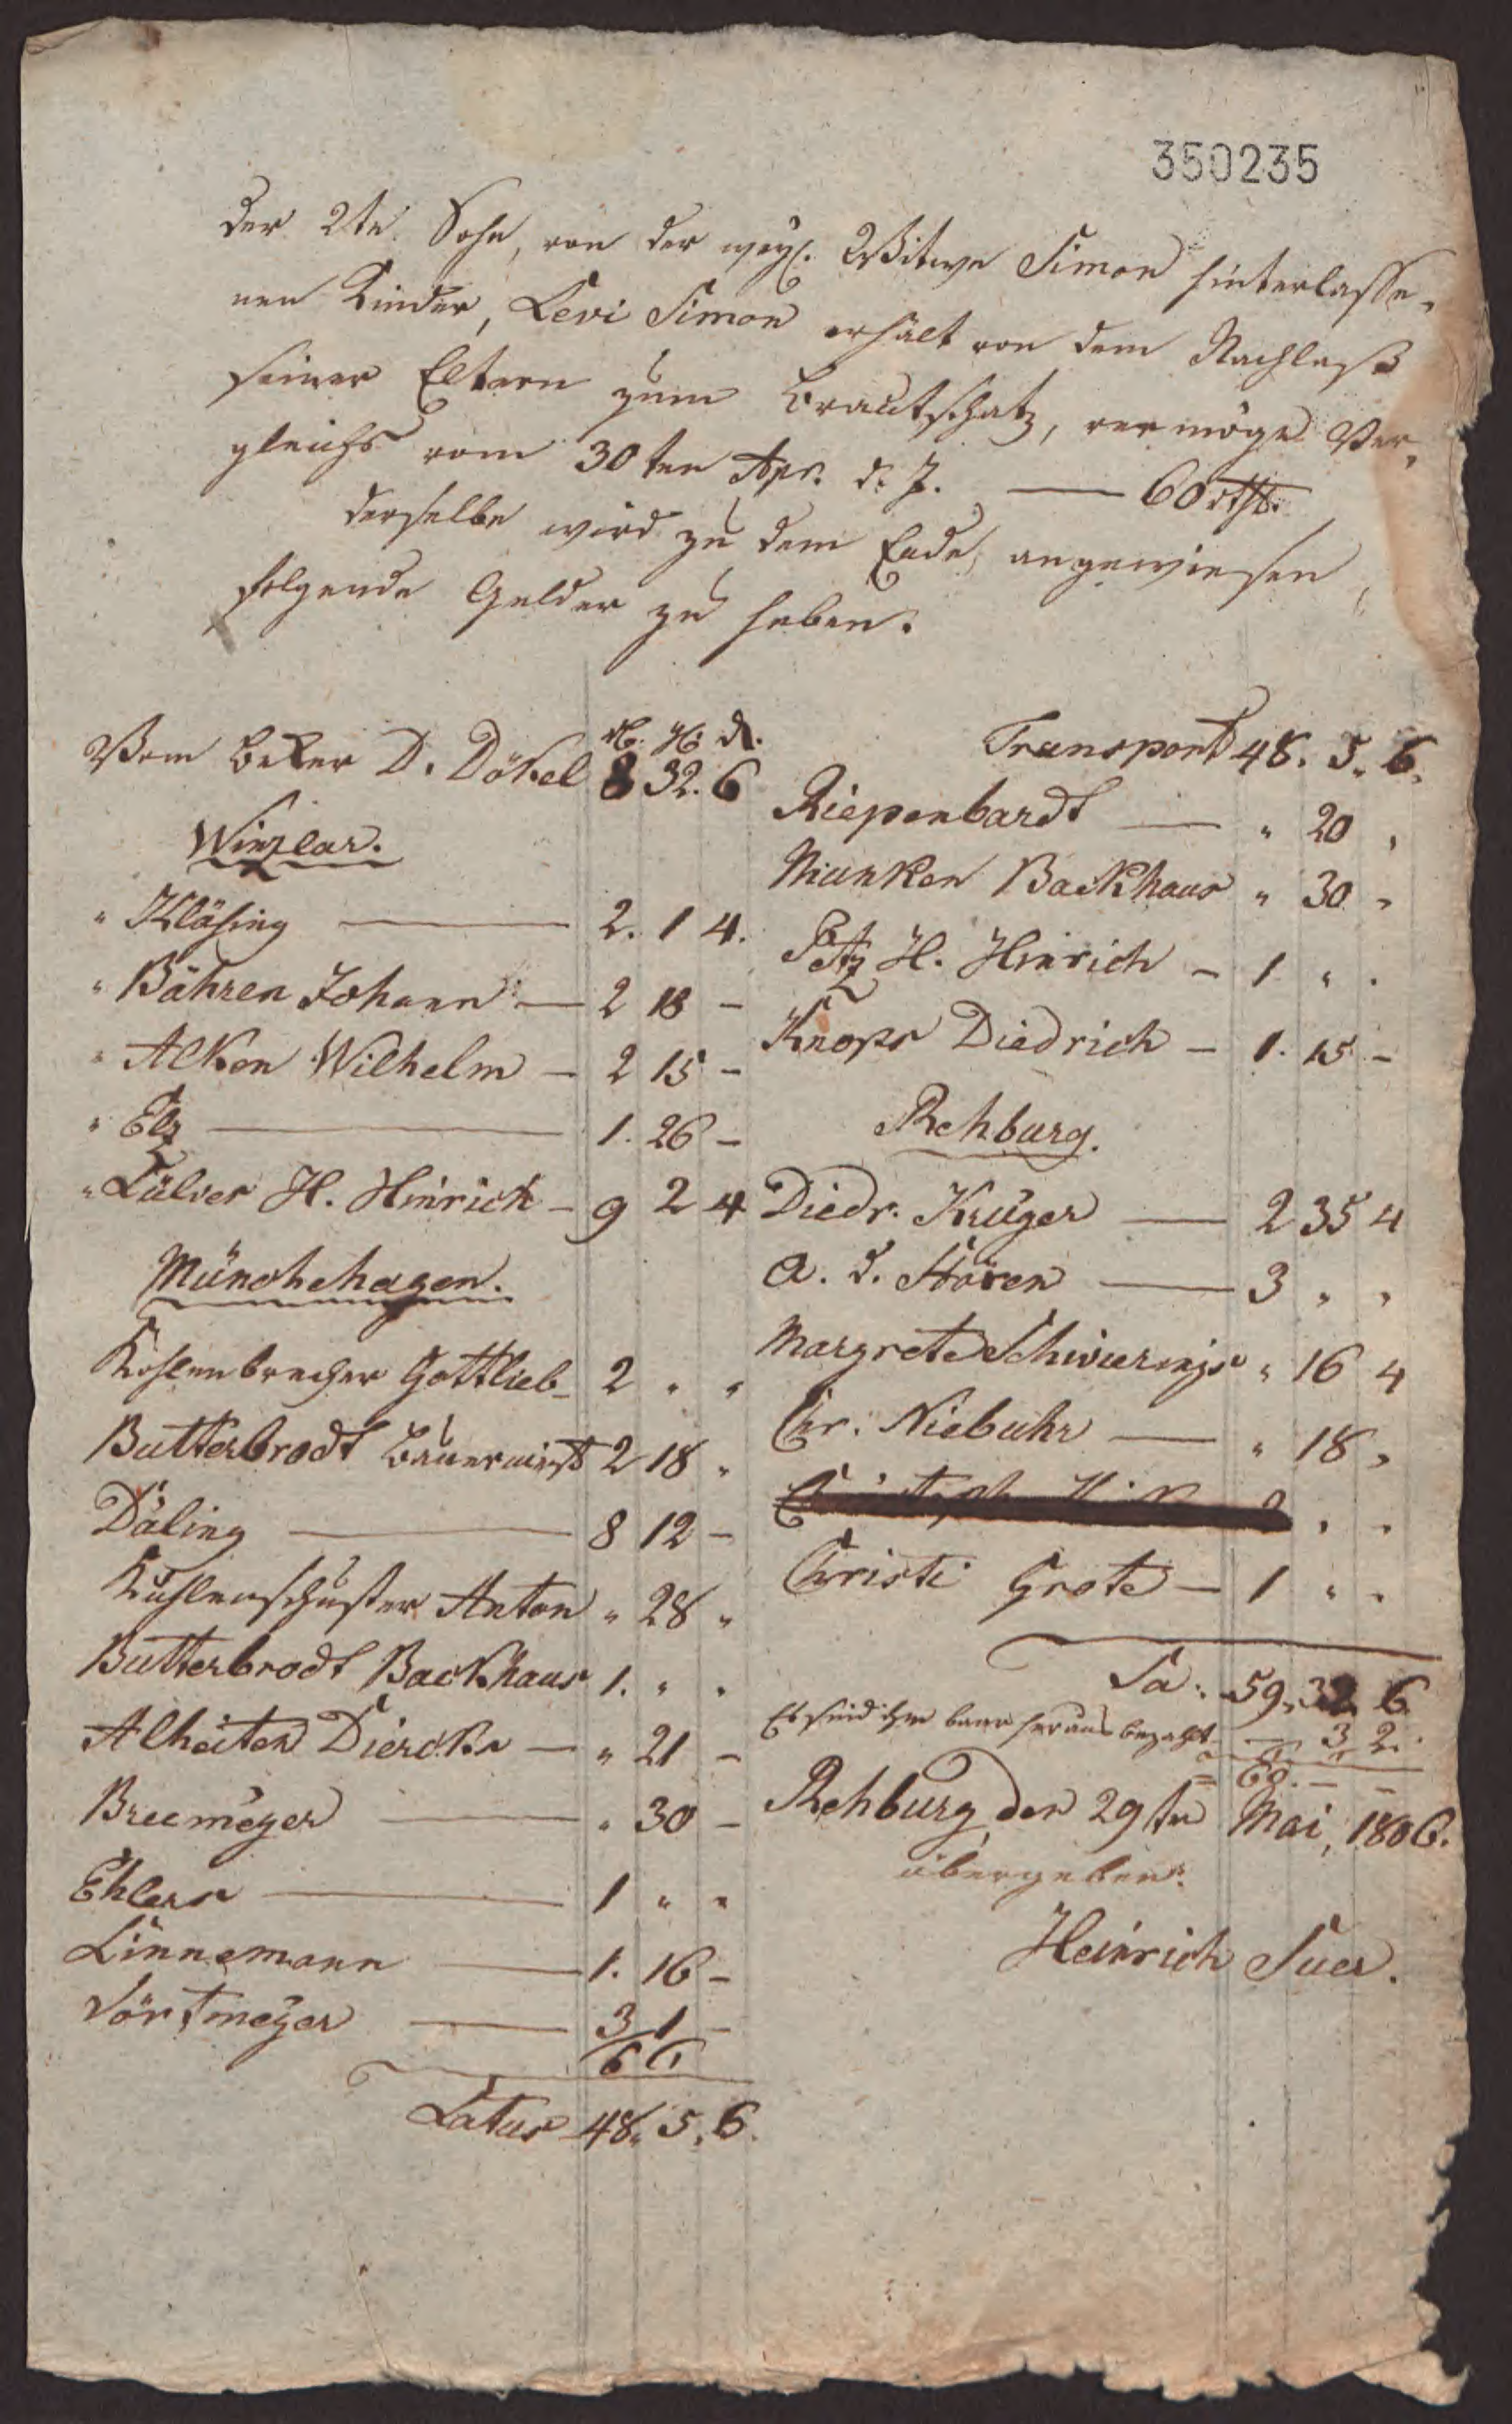 350235
Der 2te Sohn, von der weyl. Wittwe Simon hinterlasse-
nen Kinder, Levi Simon erhält von dem Nachlaß
seiner Eltern zum Brautschatz, vermöge Ver-
gleichs vom 30ten Apr. d. J. — 60 rthl.
Derselbe wird zu dem Ende angewiesen,
folgende Gelder zu heben.
Vom Beker D. Dökel 8 32. 6
Winzlar.
" Kläsing — 2. 1 4.
" Bähren Johann — 2 18 –
" Alken Wilhelm – 2 15 –
" Elz — 1. 26 –
" Lülver H. Hinrich – 9 2 4
Münchehagen.
Kohlenbrecher Gottlieb – 2 " "
Butterbrodt 2 18 "
Däling — 8 12 –
Kuhlenschuster Anton " 28 "
Butterbrodt Backhaus 1. " "
Alheiten Diercks — " 21 –
Breemeyer — " 30 –
Ehlers — 1 " "
Linnemann — 1. 16 –
Dörtmeyer — 3 1 –
66
Latus 48. 5. 6.
Transport 48. 5. 6.
Riepenbardt — " 20 "
Munken Backhaus " 30 "
H. Hinrich – 1 " "
Knops Diedrich – 1. 15 –
Rehburg.
Diedr. Krüger — 2 35 4
a. d. Stören — 3 " "
Margrete Schwierings " 16 4
Chr. Niebuhr — " 18 "
Christi Grote — 1 " "
Sa. 59. 32. 6
Es sind ihm baar heraus bezahlt — 3 2.
= 60. – –
Rehburg, den 29ten Mai, 1806.
übergeben.
Heinrich Suer.